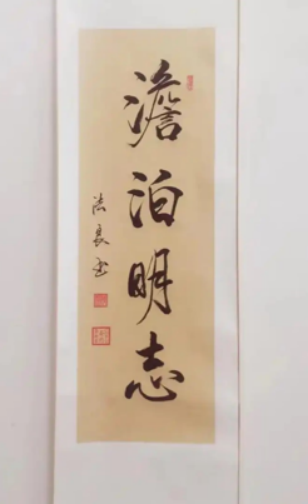 澹泊明志
洪良书